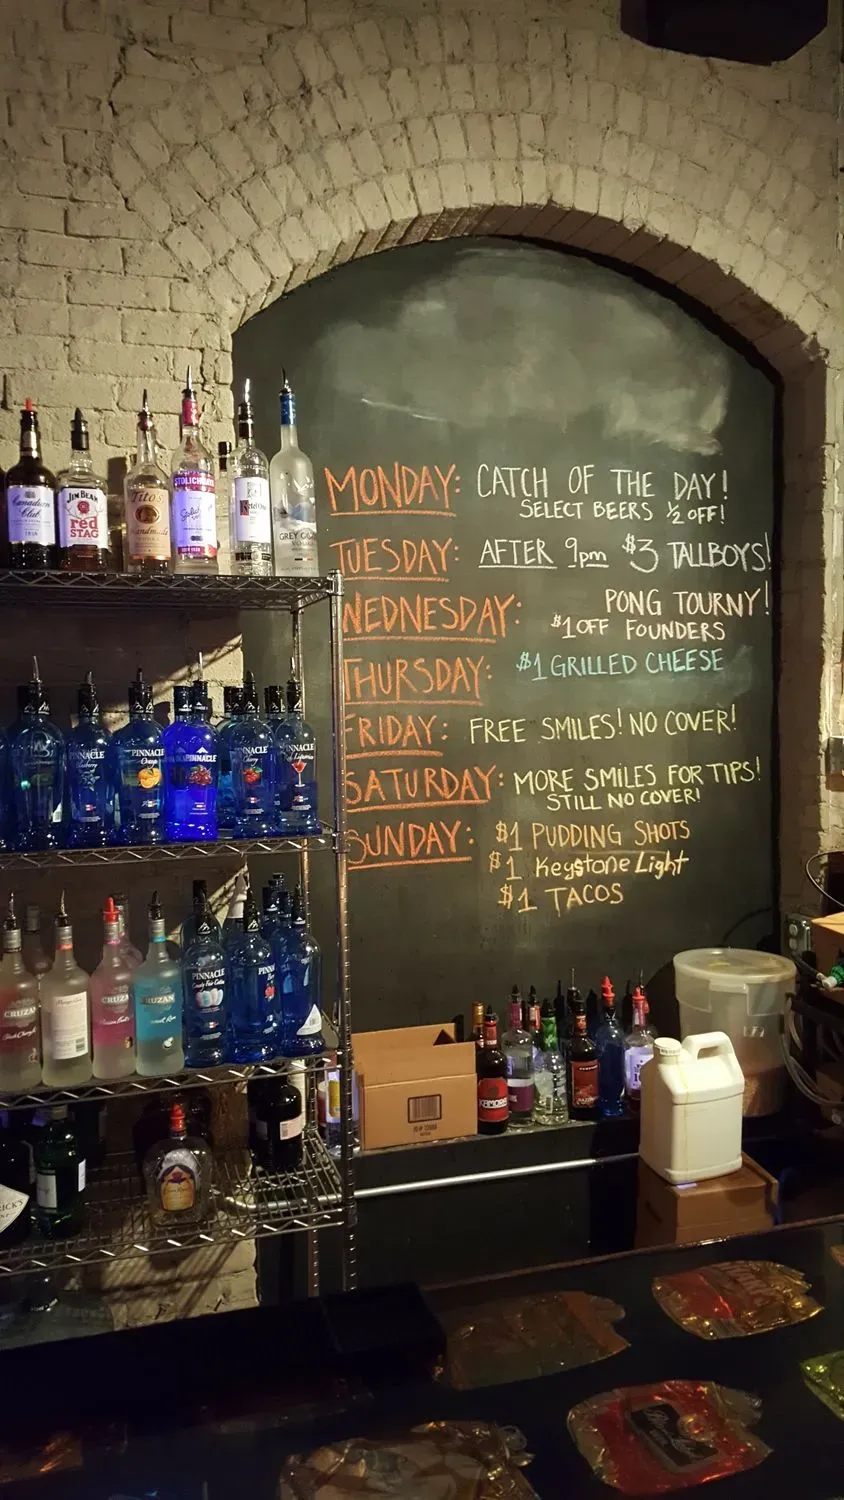 MONDAY: CATCH OF THE DAY!
SELECT BEERS ½ OFF!
TUESDAY: AFTER 9pm $3 TALLBOYS!
WEDNESDAY: PONG TOURNY!
$1 OFF FOUNDERS
THURSDAY: $1 GRILLED CHEESE
FRIDAY: FREE SMILES! NO COVER!
SATURDAY: MORE SMILES FOR TIPS!
STILL NO COVER!
SUNDAY: $1 PUDDING SHOTS
$1 Keystone Light
$1 TACOS
Canadian Club
JIM BEAM
red STAG
Tito's
Handmade
STOLICHNAYA
Ketel One
GREY GOOSE
PINNACLE
PINNACLE
Orange
PINNACLE
PINNACLE
Cherry
PINNACLE
CRUZAN
CRUZAN
CRUZAN
PINNACLE
PINN
KAMORA